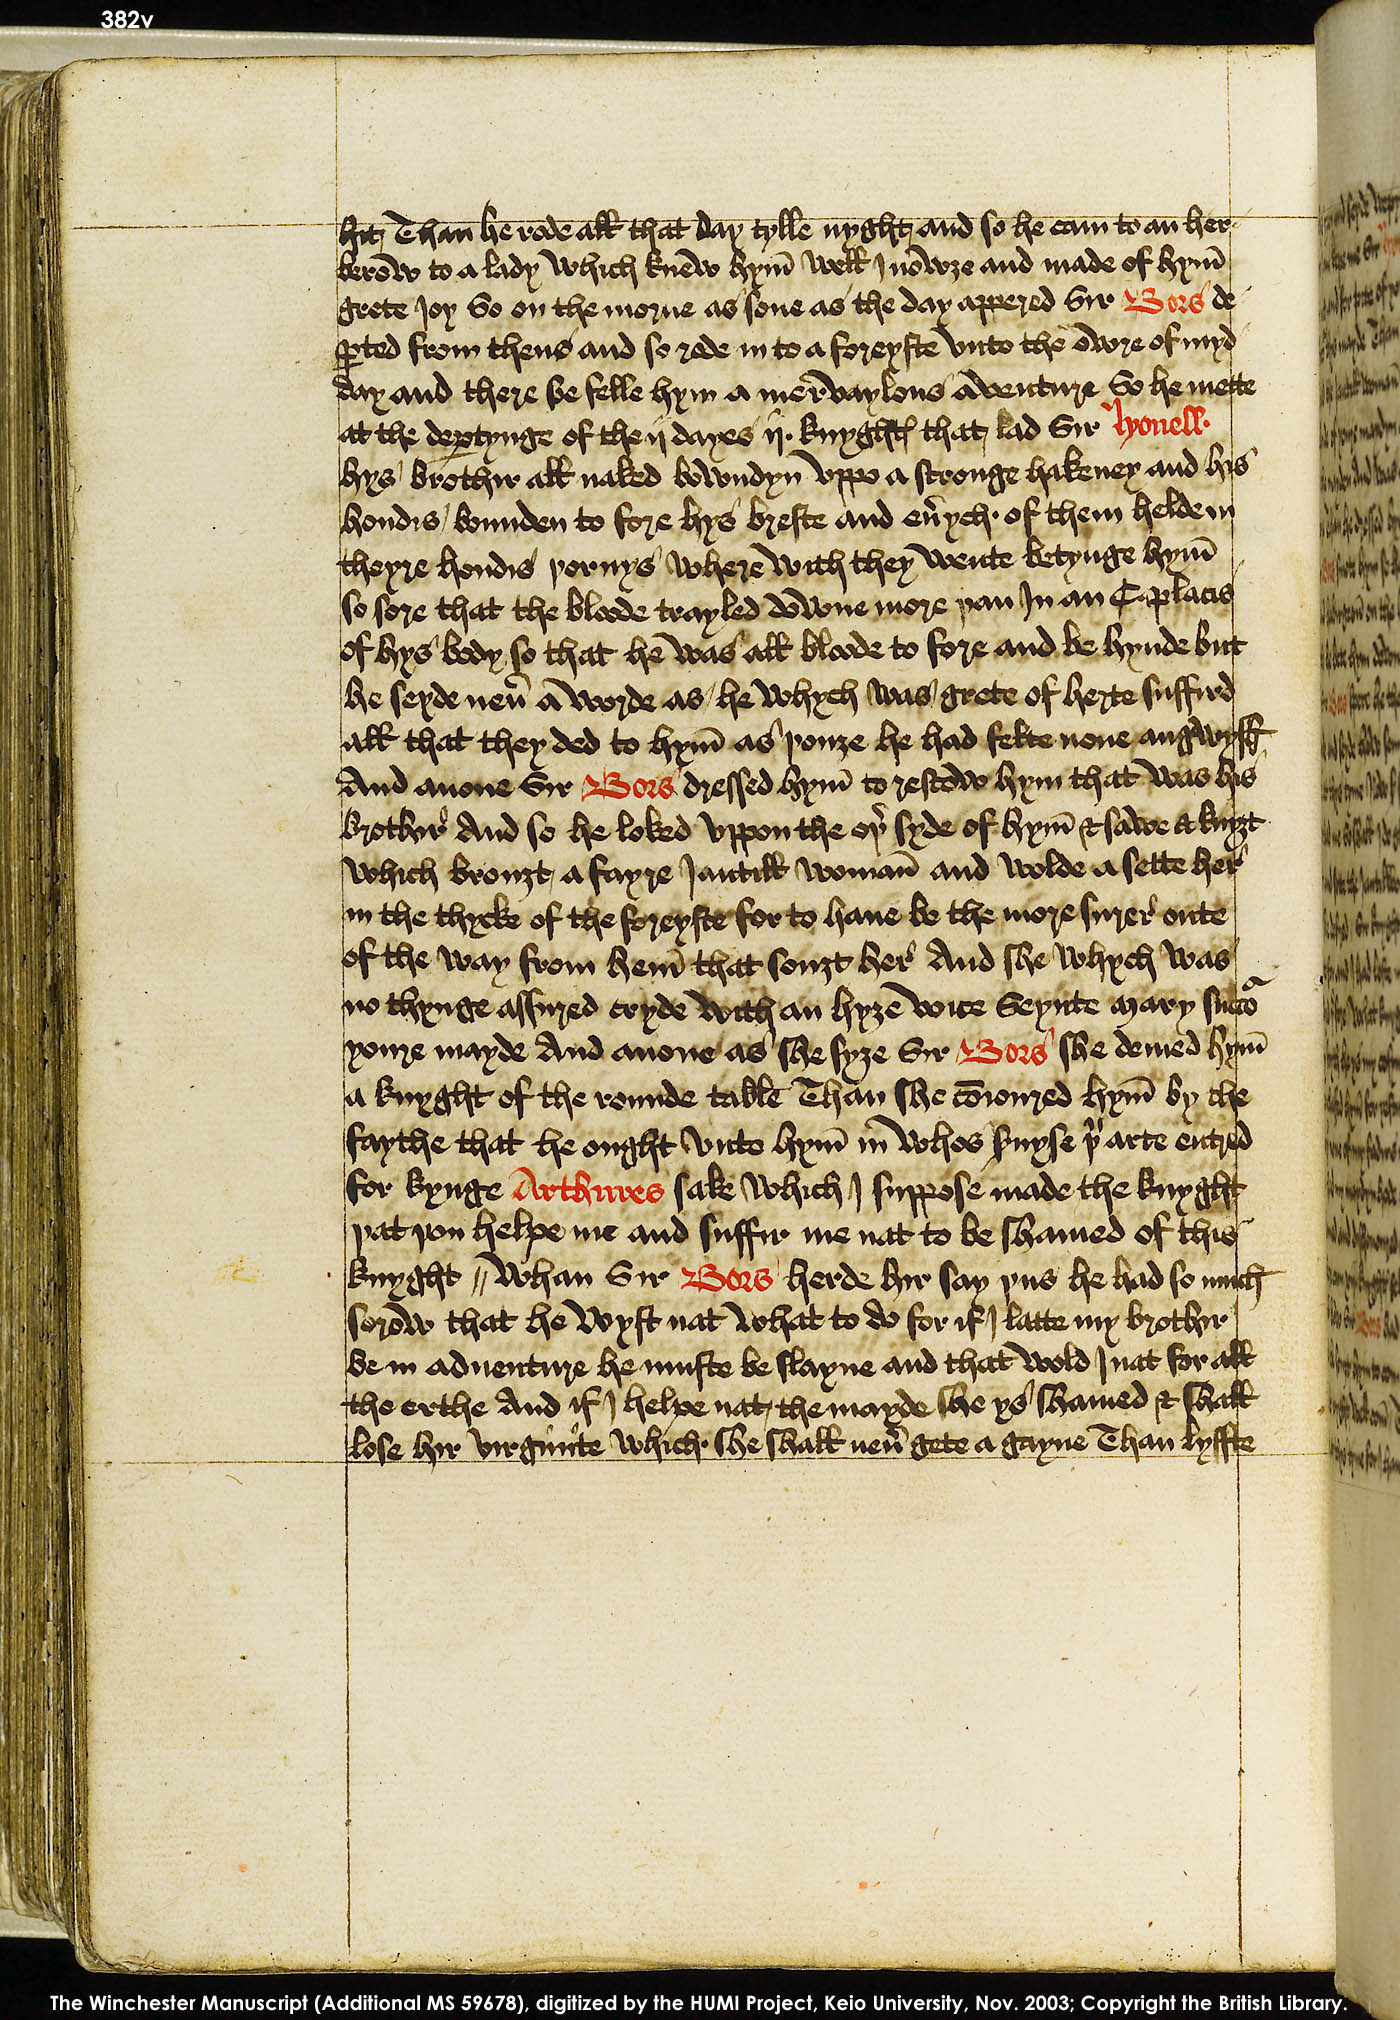 382v
hit Than he rode all that day tylle nyght and so he cam to an her
berow to a lady which knew hym̄ well Inowȝe and made of hym̄
grete Joy So on the morne as sone as the day appered Sir Bors de
ꝑted from thens and so rode in to a foreyste vnto the owre of myd
day and there be felle hym a mervaylous aventure So he mette
at the deꝑtynge of the ij wayes ij. knyghtꝭ that lad Sir lyonell.
hys brothir all naked bowndyn vppo a stronge hakeney and his
hondis bounden to fore hys breste and eu̾ych of them helde in
theyre hondis þornys where with they wente betynge hym̄
so sore that the bloode trayled downe more þan In an C placis
of hys body so that he was all bloode to fore and be hynde but
he seyde neu̾ a worde as he whych was grete of herte suffird
all that they ded to hym̄ as þouȝe he had felte none angwyssh
And anone Sir Bors dressed hym̄ to rescow hym that was his
brothir And so he loked vppon the oþ̾ syde of hym̄ & sawe a knyȝt
which brouȝt a fayre Jantill woman̄ and wolde a sette her
in the thycke of the foreyste for to haue be the more surer oute
of the way from hem̄ that souȝt her And she whych was
no thynge assured cryde with an hyȝe voice Seynte Mary sucor
youre mayde And anone as she syȝe Sir Bors she demed hym̄
a knyght of the rounde table Than she cōioured hym̄ by the
faythe that he ought vnto hym̄ in whos s̾uyse þ̾ arte entred
for kynge Arthures sake which I suppose made the knyght
þat þou helpe me and suffir me nat to be shamed of this
knyght // Whan Sir Bors herde hir say þus he had so much
sorow that he wyst nat what to do for if I latte my brothir
be in aduenture he muste be slayne and that wold I nat for all
the erthe And if I helpe nat the mayde she ys shamed & shall
lose hir virginite which she shall neu̾ gete a gayne Than lyffte
The Winchester Manuscript (Additional MS 59678), digitized by the HUMI Project, Keio University, Nov. 2003; Copyright the British Library.